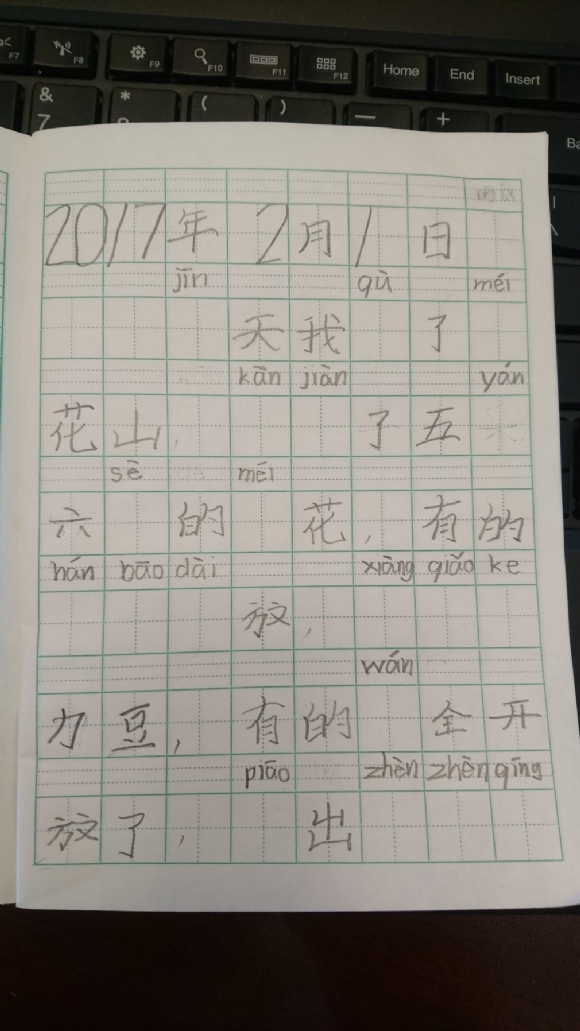 F7 F8 F9 F10 F11 F12 Home End Insert
& 7 * ( ) — +
2017年 2月1日
jīn qù méi
天我 了
kān jiàn yán
花山, 了五
sè méi
六 的 花, 有的
hán bāo dài xiàng qiǎo ke
放,
wán
力豆, 有的 全开
piāo zhèn zhèn qīng
放了, 出